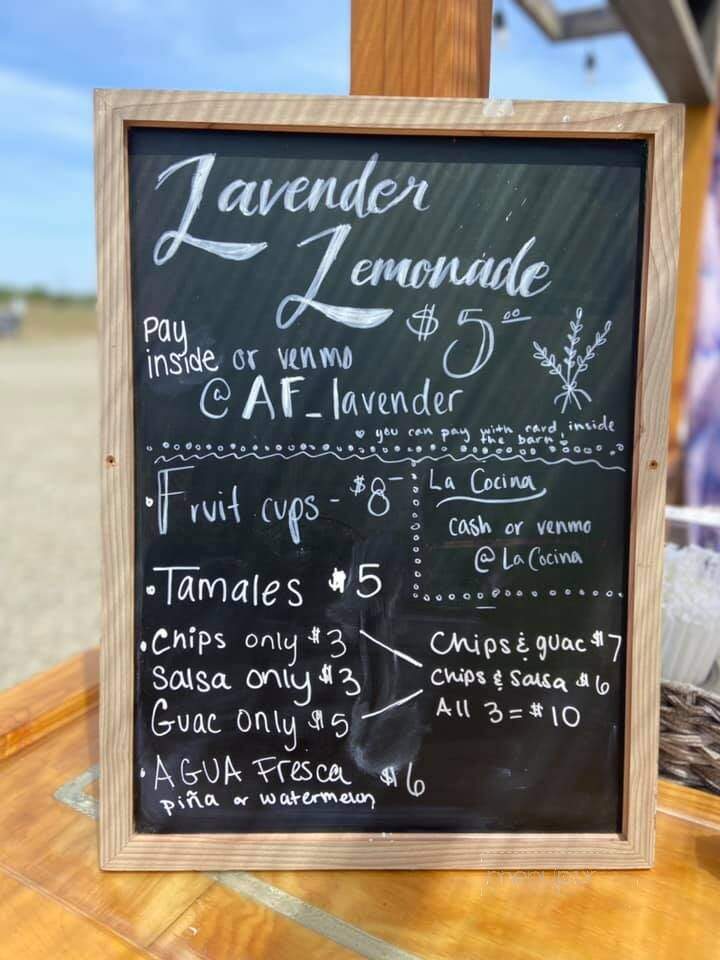 Lavender
Lemonade
$5.00
Pay
inside or venmo
@AF_lavender
♥ you can pay with card inside
the barn ♥
• Fruit cups - $8-
La Cocina
cash or venmo
@La Cocina
• Tamales $5
• Chips only $3
Salsa only $3
Guac only $5
Chips & guac $7
Chips & Salsa $6
All 3 = $10
• AGUA Fresca $6
piña or watermelon
menupix